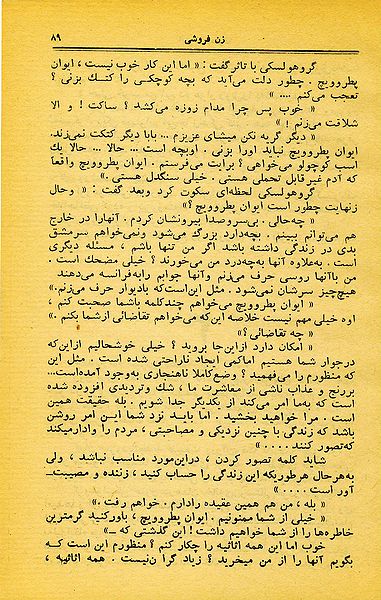 زن فروشی ۸۹
گروهولسکی با تاثر گفت : « اما این کار خوب نیست ، ایوان
پطروویچ . چطور دلت می‌آید که بچه کوچکی را کتک بزنی ؟
تعجب می‌کنم .... »
« خوب پس چرا مدام زوزه می‌کشد ؟ ساکت ! و الا
شلاقت می‌زنم ! »
« دیگر گریه نکن میشای عزیزم ... بابا دیگر کتکت نمی‌زند.
ایوان پطروویچ نباید اورا بزنی . اوبچه است ... حالا ... حالا یک
اسب کوچولو می‌خواهی ؟ برایت می‌فرستم . ایوان پطروویچ واقعاً
که آدم غیر قابل تحملی هستی . خیلی سنگدل هستی .»
گروهولسکی لحظه‌ای سکوت کرد وبعد گفت : « وحال
زنهایت چطور است ایوان پطروویچ ؟ »
« چه‌حالی . بی‌سروصدا بیرونشان کردم . آنهارا در خارج
هم می‌توانم ببینم . بچه‌دارد بزرگ می‌شود ونمی‌خواهم سرمشق
بدی در زندگی داشته باشد اگر من تنها باشم ، مسئله دیگری
است . به‌علاوه آنها به‌چه‌درد من می‌خورند ؟ خیلی مضحك است .
من باآنها روسی حرف می‌زنم وآنها جوابم رابه‌فرانسه می‌دهند
هیچ‌چیز سرشان نمی‌شود . مثل این‌است‌که بادیوار حرف می‌زنم.»
« ایوان پطروویچ می‌خواهم چندکلمه باشما صحبت کنم ،
اوه خیلی مهم نیست خلاصه این‌که می‌خواهم تقاضائی ازشما بکنم .»
« چه تقاضائی ؟ »
« امکان دارد ازاین‌جا بروید ؟ خیلی خوشحالیم ازاین‌که
درجوار شما هستیم اماکمی ایجاد ناراحتی شده است . مثل این
که منظورم را می‌فهمید ؟ وضع‌کاملا ناهنجاری به‌وجود آمده‌است...
بررنج و عذاب ناشی از معاشرت ما ، شك وتردیدی افزوده شده
است که به‌ما امر می‌کند از یکدیگر جدا شویم . بله حقیقت همین
است . مرا خواهید بخشید . اما باید نزد شما این امر روشن
باشد که زندگی با چنین نزدیکی و مصاحبتی ، مردم را وادارمیکند
که‌تصور کنند..... »
شاید کلمه تصور کردن ، دراین‌مورد مناسب نباشد ، ولی
به‌هرحال هرطوریکه این زندگی را حساب کنید ، زننده و مصیبت‌ـ
آور است ..... »
« بله ، من هم همین عقیده رادارم . خواهم رفت .»
« خیلی از شما ممنونیم . ایوان پطروویچ ، باورکنید گرمترین
خاطره‌ها را از شما خواهیم داشت ! این گذشتی که ـــ »
خوب اما این همه اثاثیه را چکار کنم ؟ منظورم این است کـه
بگویم آنها را از من میخرید ؟ زیاد گران‌نیست . همه اثاثیه ،